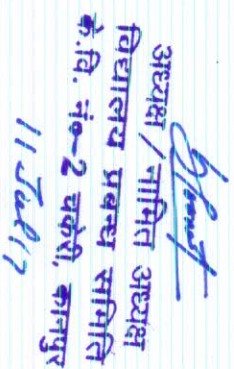 अध्यक्ष / नामित अध्यक्ष
विद्यालय प्रबन्ध समिति
के.वि. नं०-2 चकेरी, कानपुर
11 Jul 17